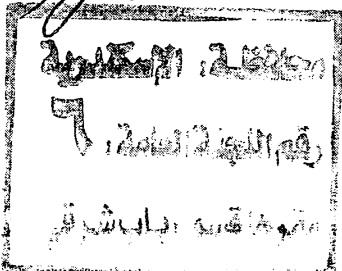 محافظة: الإسكندرية
رقم اللجنة العامة: ٦
ومقرها قسم: باب شرقي